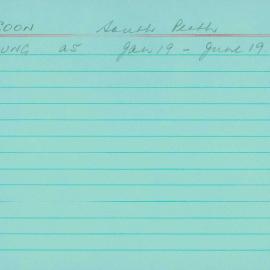 COON South Perth
UNG as Jan 19 - June 19